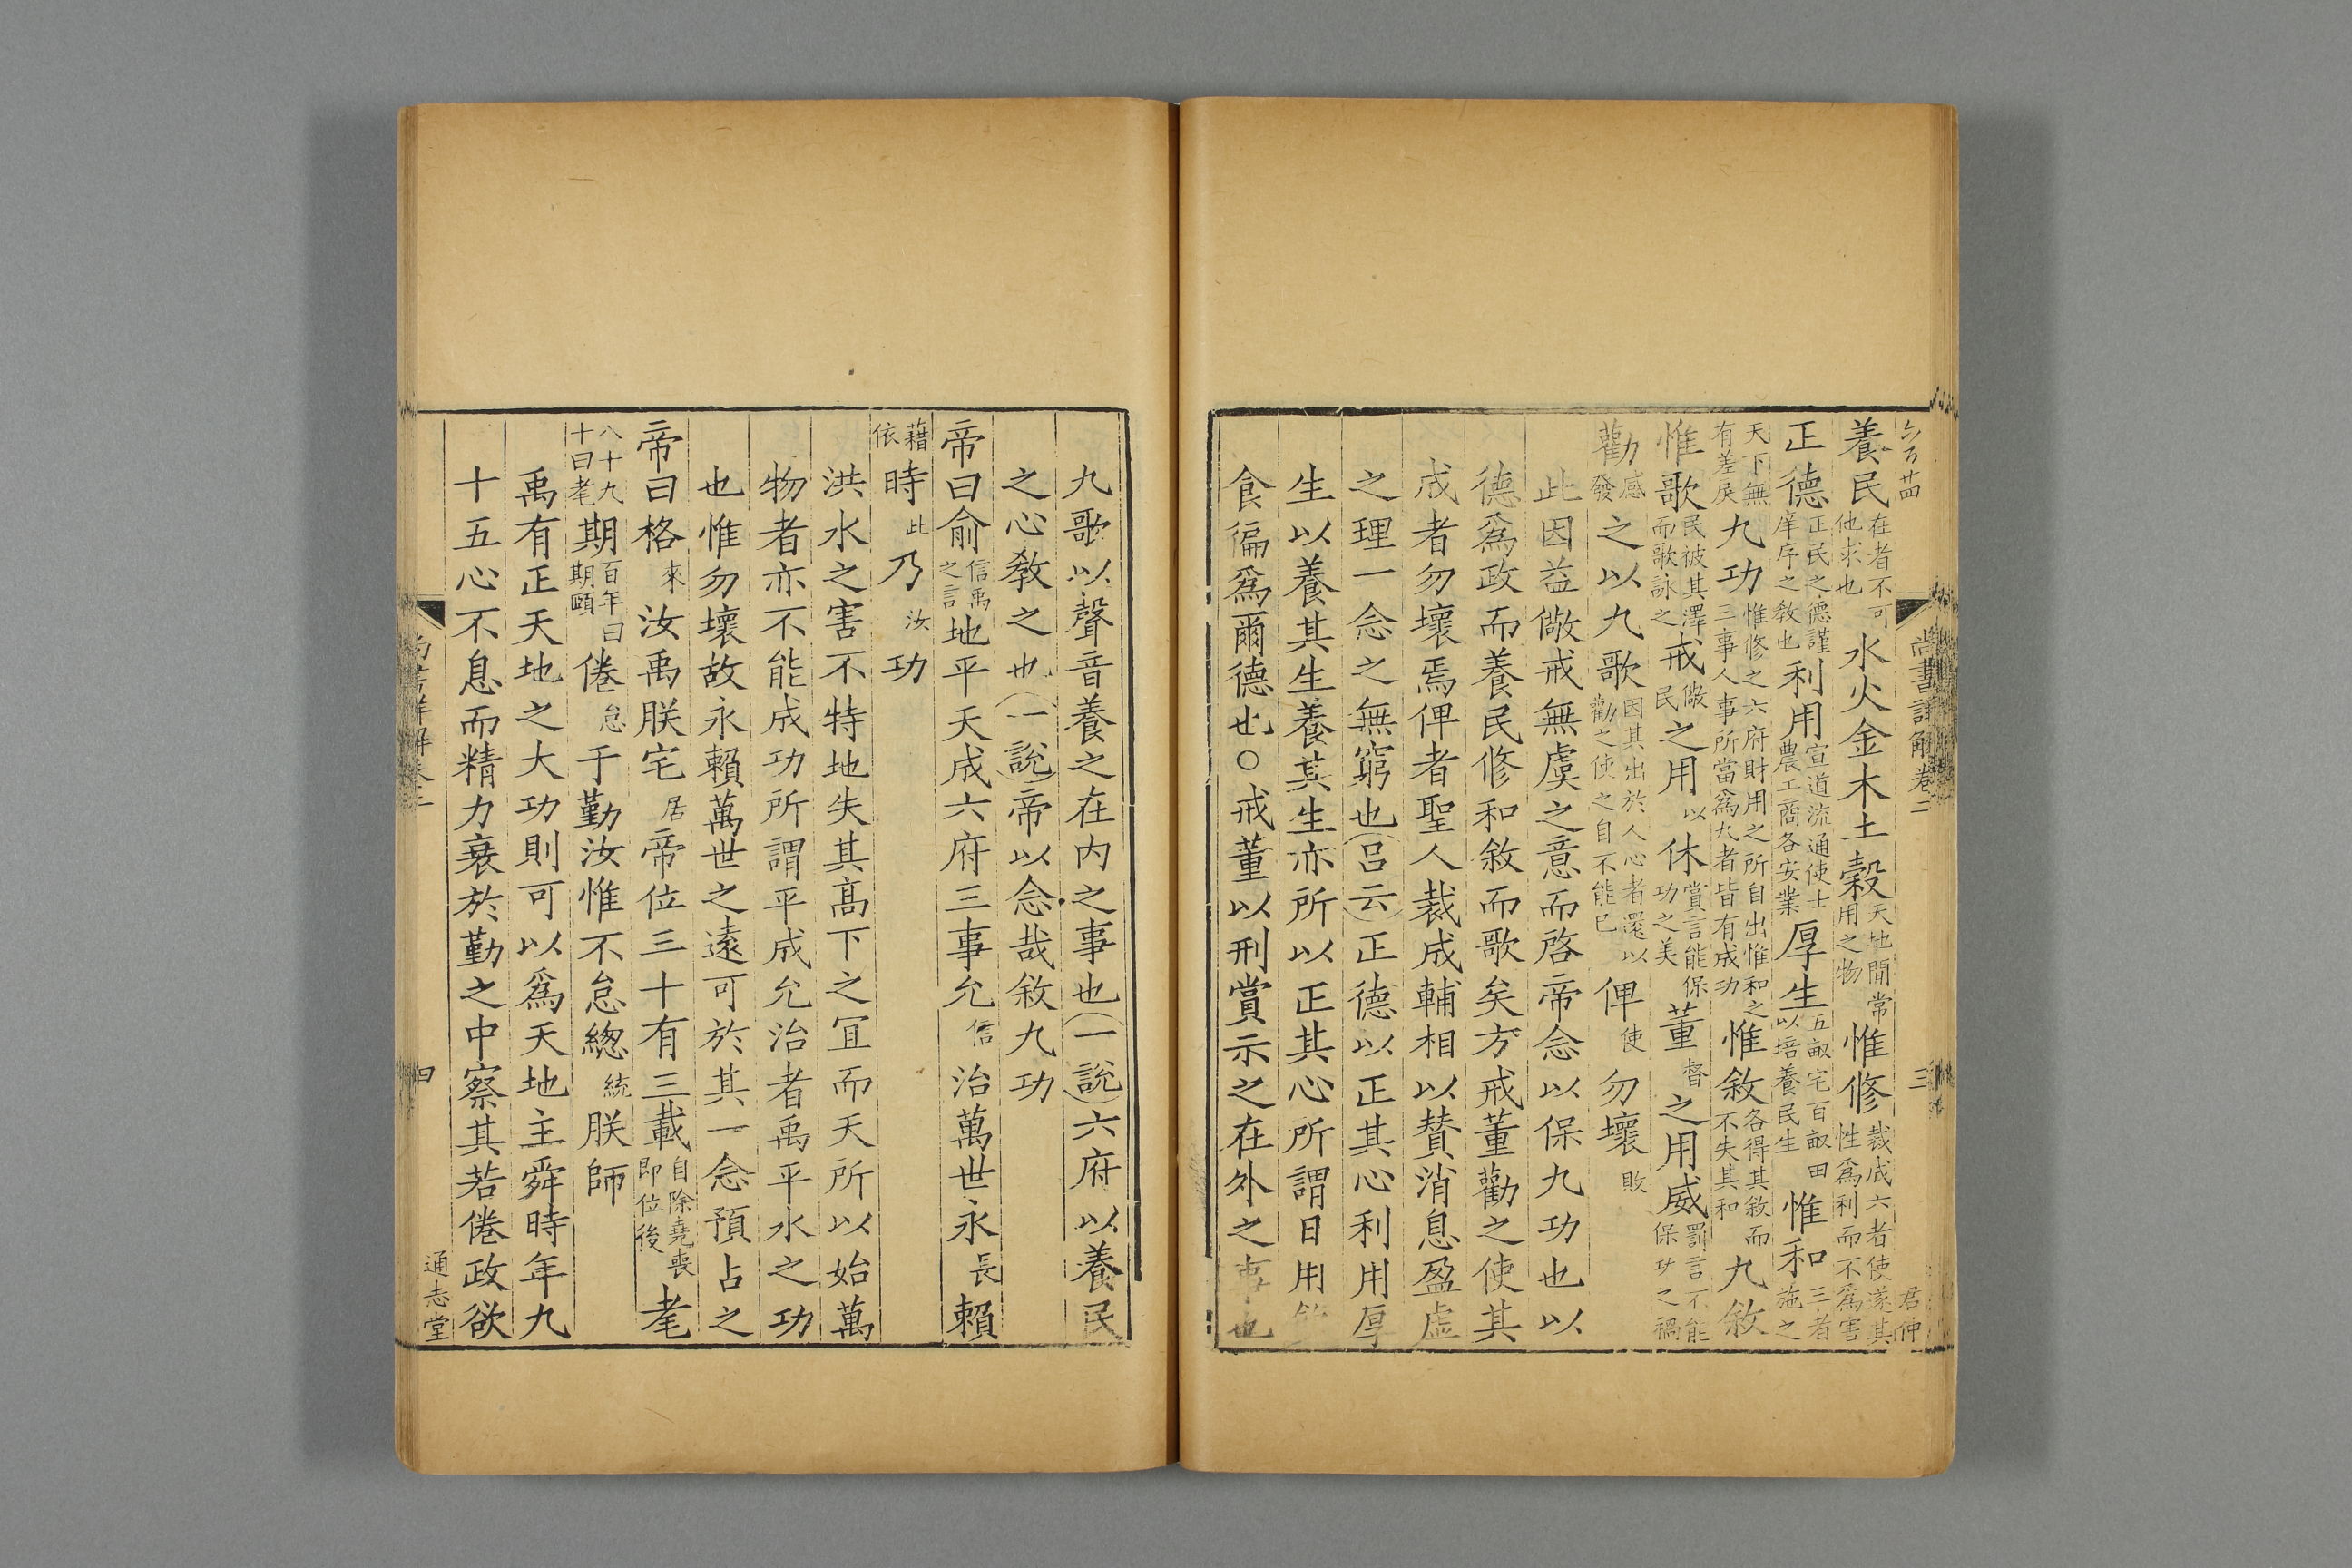 六百廿四
尚書詳解卷二 三 君仲
養民在者不可他求也水火金木土穀天地間常用之物惟修裁成六者使遂其性爲利而不爲害
正德正民之德謹庠序之教也利用宣道流通使士農工商各安業厚生五畝宅百畝田以培養民生惟和三者施之
天下無有差戾九功惟修之六府財用之所自出惟和之三事人事所當爲九者皆有成功惟敘各得其敘而不失其和九敘
惟歌民被其澤而歌詠之戒儆民之用以休賞言能保功之美董督之用威罰言不能保功之禍
勸感發之以九歌因其出於人心者還以勸之使之自不能已俾使勿壞敗
此因益儆戒無虞之意而啓帝念以保九功也以
德爲政而養民修和敘而歌矣方戒董勸之使其
成者勿壞焉俾者聖人裁成輔相以贊消息盈虛
之理一念之無窮也呂云正德以正其心利用厚
生以養其生養其生亦所以正其心所謂日用飲
食徧爲爾德也○戒董以刑賞示之在外之事也
九歌以聲音養之在内之事也一說六府以養民
之心敎之也一說帝以念哉敘九功
帝曰俞信禹之言地平天成六府三事允信治萬世永長賴
藉依時此乃汝功
洪水之害不特地失其高下之冝而天所以始萬
物者亦不能成功所謂平成允治者禹平水之功
也惟勿壞故永賴萬世之遠可於其一念預占之
帝曰格來汝禹朕宅居帝位三十有三載自除堯喪即位後耄
八十九十曰耄期百年曰期頤倦怠于勤汝惟不怠總統朕師
禹有正天地之大功則可以爲天地主舜時年九
十五心不息而精力衰於勤之中察其若倦政欲
尚書詳解卷二 四 通志堂